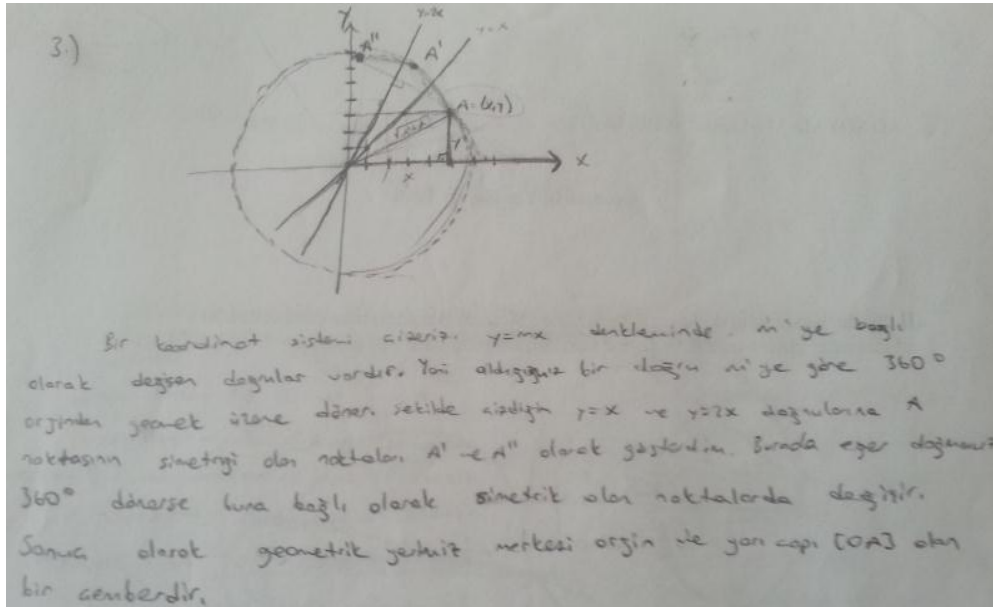 3.)
y
y=2x
y=x
A''
A'
A=(x,y)
y
x
x
Bir koordinat sistemi çizeriz. y=mx denkleminde m'ye bağlı
olarak değişen doğrular vardır. Yani aldığımız bir doğru m'ye göre 360°
orjinden geçmek üzere döner. Şekilde çizdiğim y=x ve y=2x doğrularına A
noktasının simetriği olan noktaları A' ve A'' olarak gösterdim. Burada eğer doğrumuz
360° dönerse buna bağlı olarak simetrik olan noktalarda değişir.
Sonuç olarak geometrik yerimiz merkezi orjin ve yarı çapı [OA] olan
bir çemberdir.